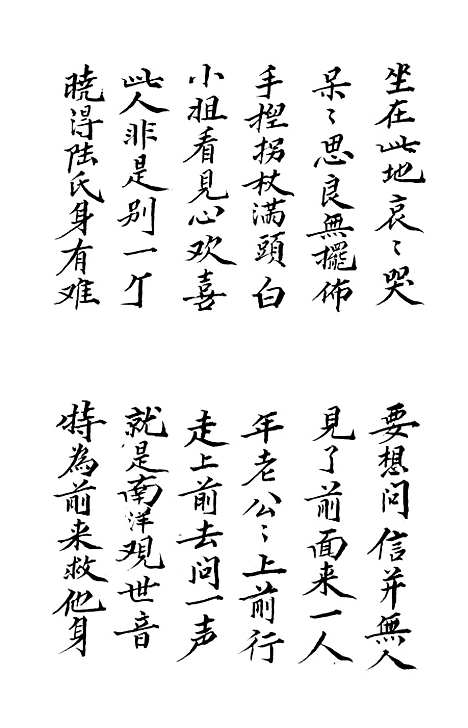 坐在此地哀〻哭
要想问信并無人
呆〻思良無擺佈
見了前面来一人
手捏拐杖滿頭白
年老公〻上前行
小姐看見心欢喜
走上前去问一声
此人非是别一亇
就是南洋观世音
暁得陆氏身有难
特為前来救他身